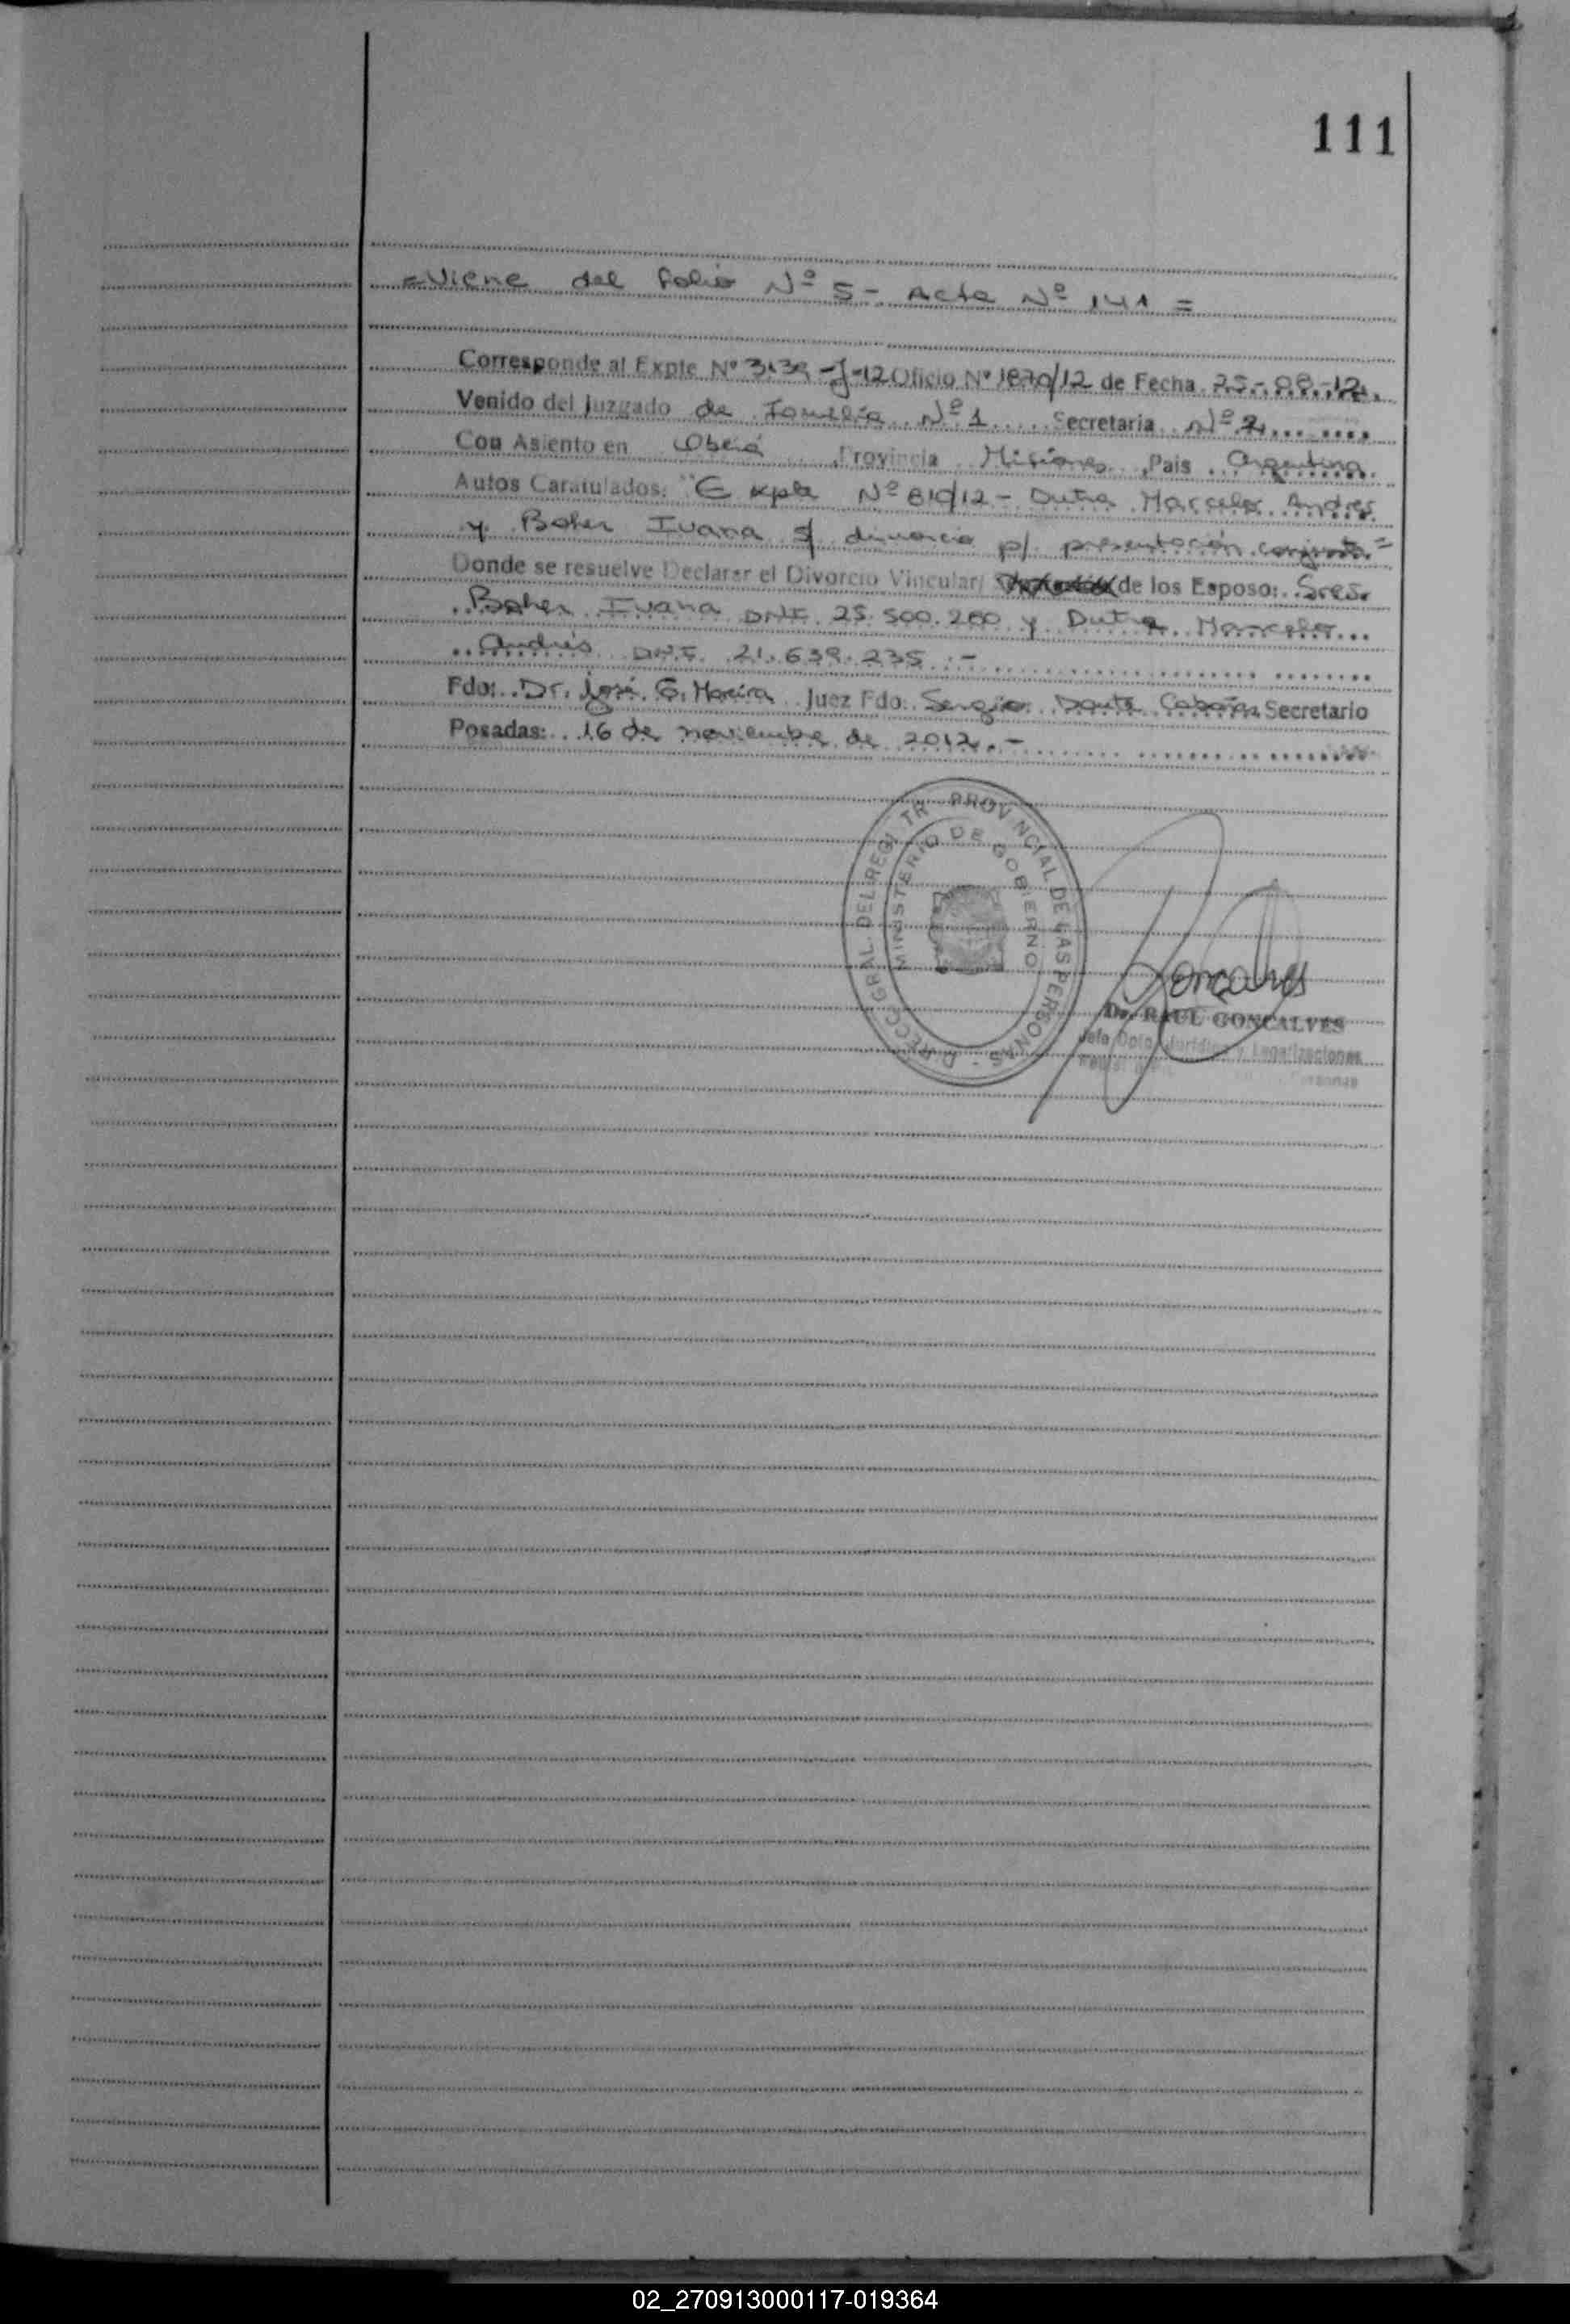 111
=Viene del folio Nº 5 - Acta Nº 141 =
Corresponde al Expte Nº 3139 -J-12 Oficio Nº 1870/12 de Fecha 25-09-12.
Venido del Juzgado de Familia Nº 1 Secretaria Nº 2
Con Asiento en Oberá Provincia Misiones Pais Argentina
Autos Caratulados: "Expte Nº 810/12 - Dutra Marcelo Andres
y Boher Ivana s/ divorcio p/ presentación conjunta=
Donde se resuelve Declarar el Divorcio Vincular/ de los Esposo: Sres.
Boher Ivana DNI. 25.500.260 y Dutra Marcelo
Andrés DNI. 21.639.235.-
Fdo: Dr. José G. Moreira Juez Fdo. Sergio Dante Cabañas Secretario
Posadas: 16 de noviembre de 2012.-
DIRECC. GRAL. DEL REGISTR PROVINCIAL DE LAS PERSONAS -
MINISTERIO DE GOBIERNO
Goncalves
Dr. RAUL GONCALVES
Jefe Dpto. Jurídico y Legalizaciones
02_270913000117-019364